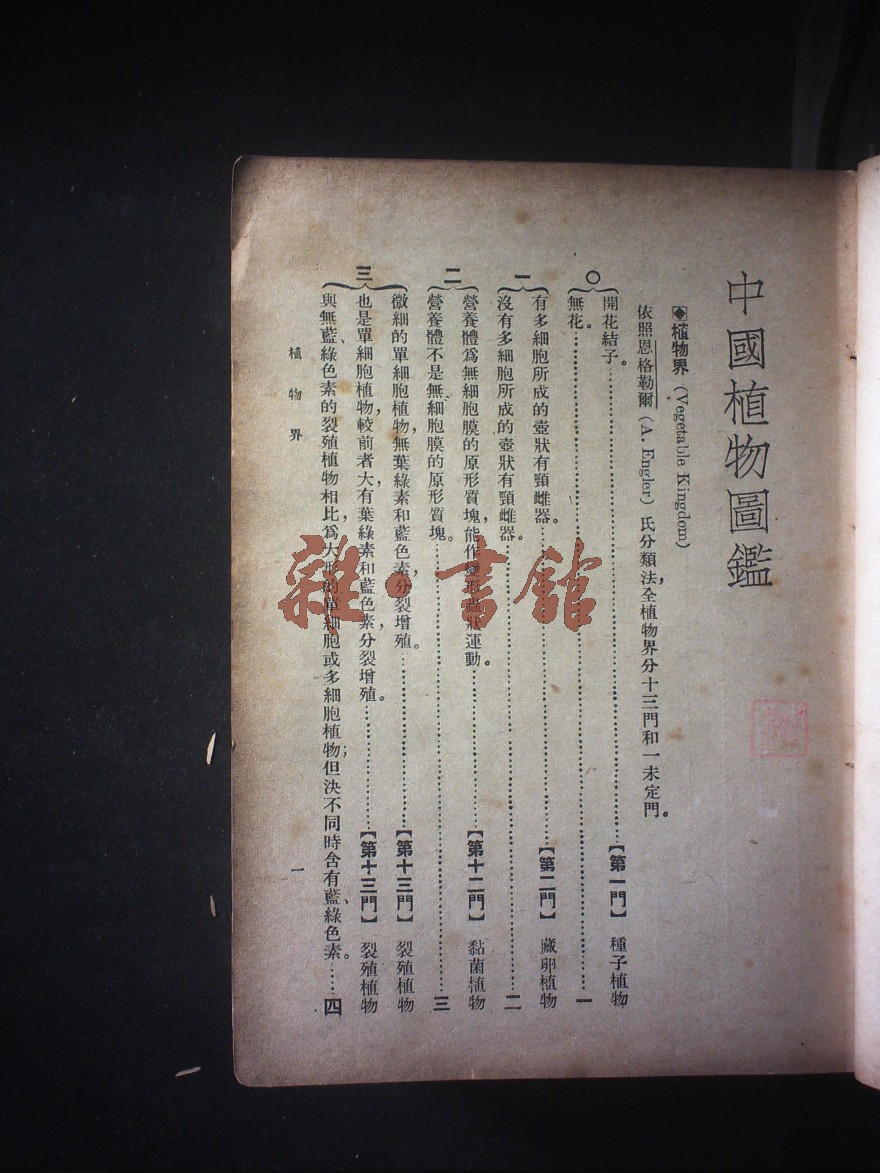 中國植物圖鑑
◆植物界 (Vegetable Kingdom)
依照恩格勒爾 (A. Engler) 氏分類法，全植物界分十三門和一未定門。
〇
開花結子。……【第一門】 種子植物
無花。……一
一
有多細胞所成的壺狀有頸雌器。……【第二門】 藏卵植物
沒有多細胞所成的壺狀有頸雌器。……二
二
營養體爲無細胞膜的原形質塊，能作變形蟲狀運動。……【第十二門】 黏菌植物
營養體不是無細胞膜的原形質塊。……三
三
微細的單細胞植物，無葉綠素和藍色素，分裂增殖。……【第十三門】 裂殖植物
也是單細胞植物，較前者大，有葉綠素和藍色素，分裂增殖。……【第十三門】 裂殖植物
與無藍、綠色素的裂殖植物相比，爲大形的單細胞或多細胞植物；但決不同時含有藍、綠色素。……四
植物界
一
雜·書館